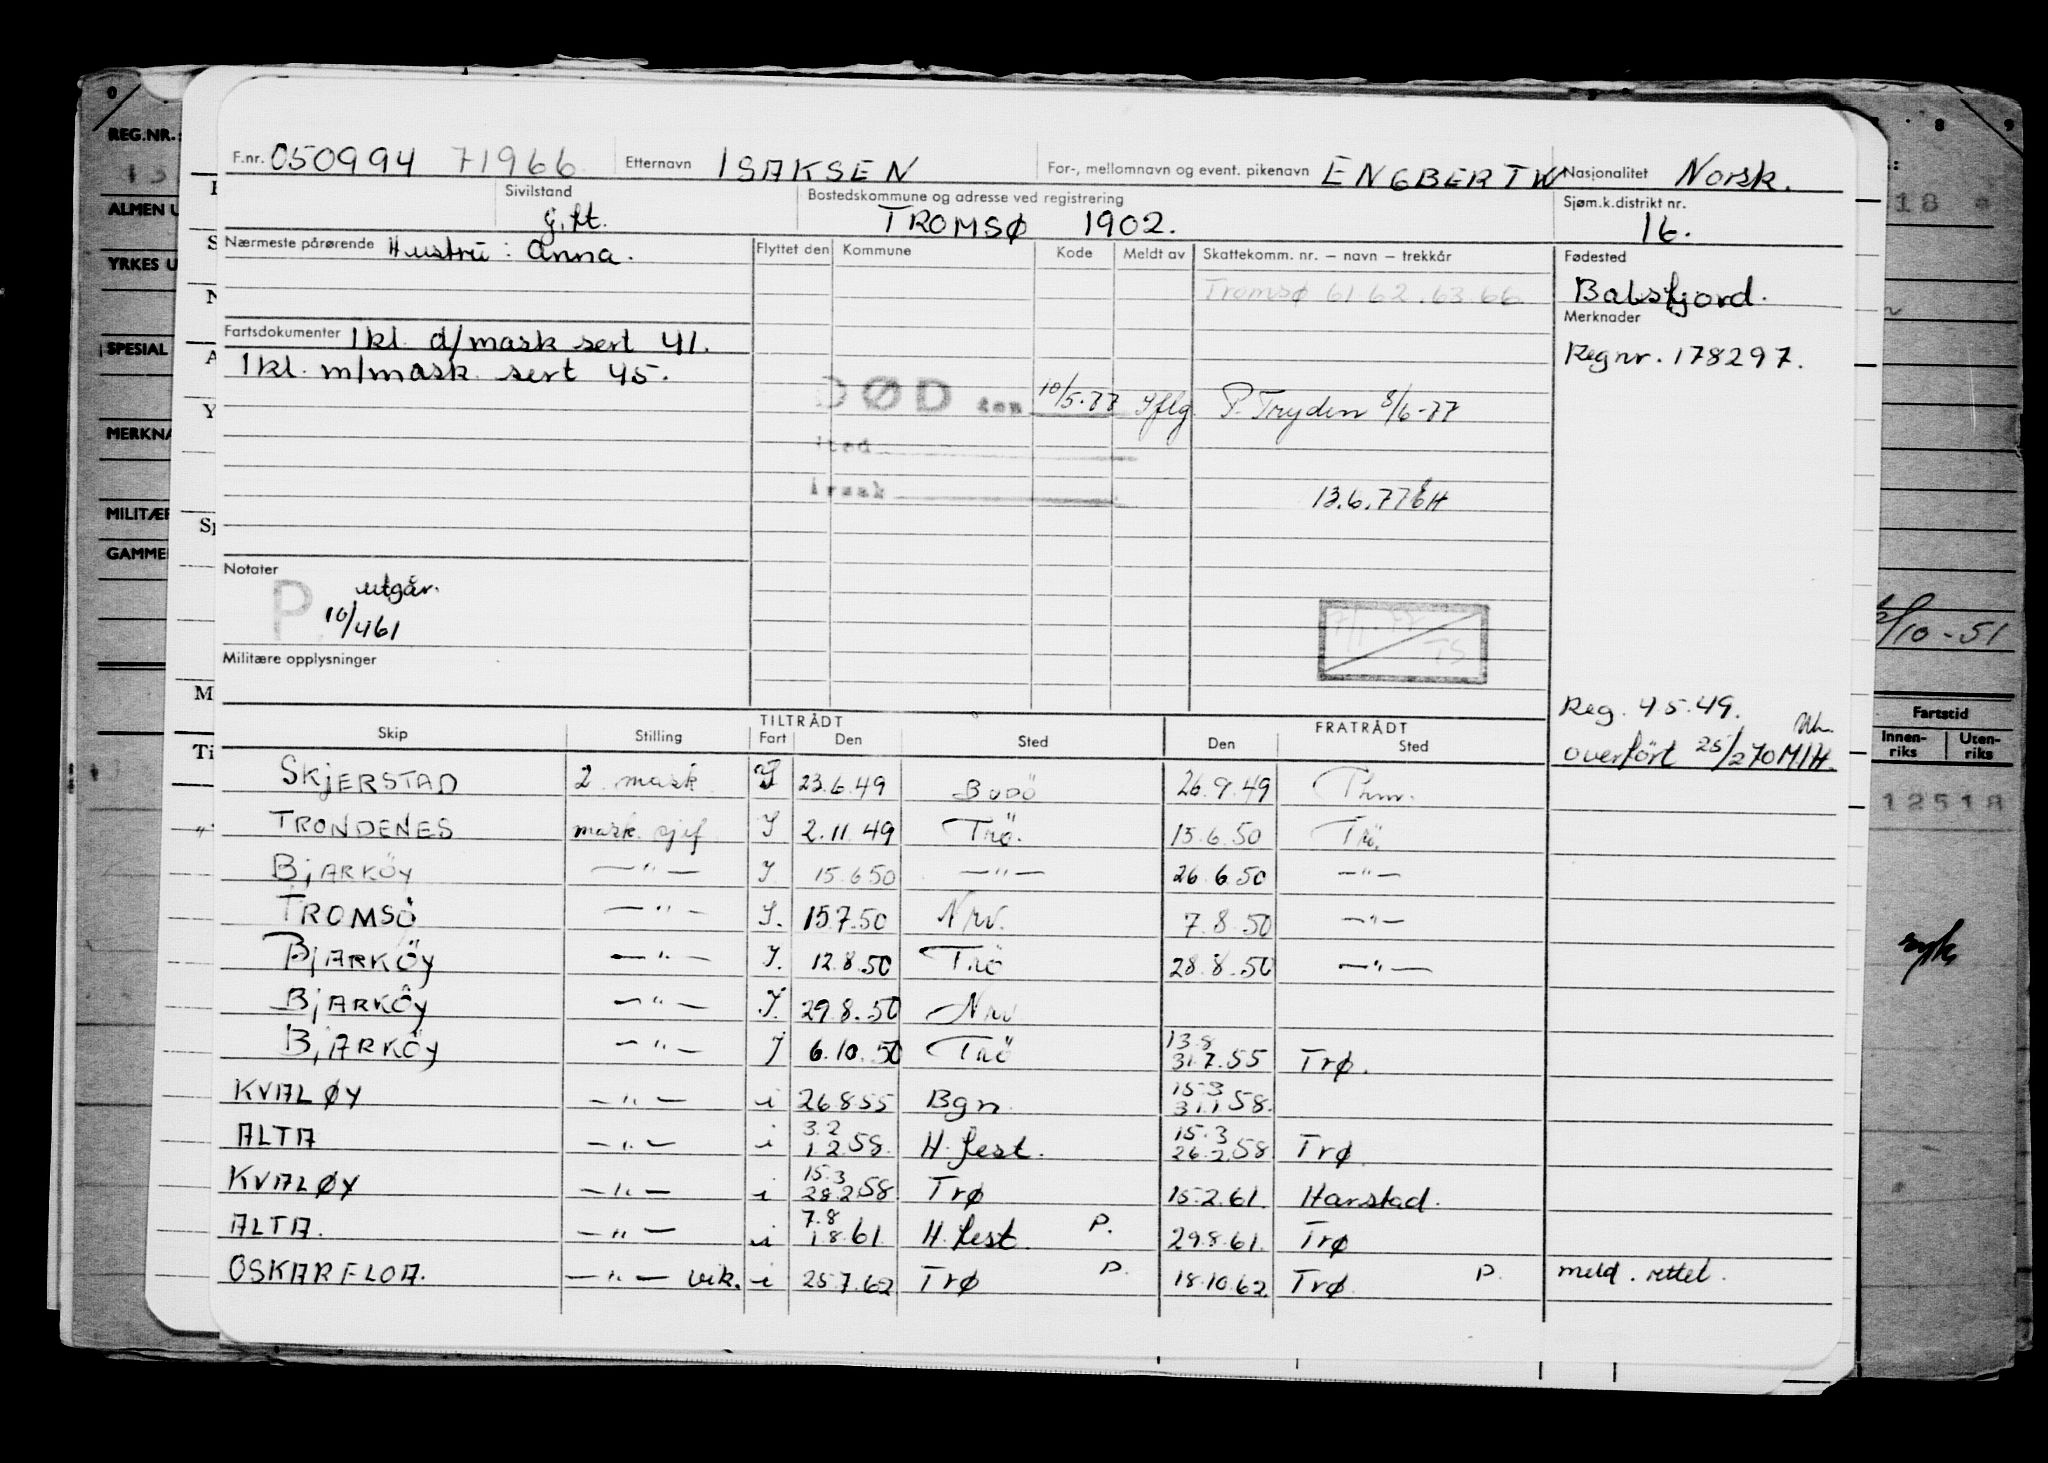 F.nr. 050994 71966 Etternavn ISAKSEN For-, mellomnavn og event. pikenavn ENGBERT W Nasjonalitet Norsk.
Sivilstand gift. Bostedskommune og adresse ved registrering TROMSØ 1902. Sjøm.k.distrikt nr. 16.
Nærmeste pårørende Hustru: Anna. Flyttet den Kommune Kode Meldt av Skattekomm. nr. – navn – trekkår Fødested
Tromsø 61.62.63.66 Balsfjord.
Merknader
Fartsdokumenter 1kl. d/mask sert 41. Regnr. 178297.
1kl. m/mask. sert 45.
DØD den 10/5.77 Iflg P. Tryden 8/6-77
sted
årsak 13.6.77
Notater
P. utgår.
10/461
Militære opplysninger
Reg. 4.5.49.
overført 25/270 MIH.
Skip Stilling TILTRÅDT Fart Den Sted FRATRÅDT Den Sted
SKJERSTAD 2. mask. I 23.6.49 Bodö 26.9.49 Thm.
TRONDENES mask. sjef I 2.11.49 Trö. 15.6.50 Trö.
BJARKÖY —"— I. 15.6.50 —"— 26.6.50 —"—
TROMSÖ —"— I. 15.7.50 Nrv. 7.8.50 —"—
BJARKÖY —"— I. 12.8.50 Trö 28.8.50 —"—
BJARKÖY —"— I. 29.8.50 Nrv
BJARKÖY —"— I 6.10.50 Trö 13.8 31.7.55 Trø.
KVALØY —"— i 26.8.55 Bgn. 15.3 31.1.58.
ALTA —"— i 3.2 1.2.58. H.fest. 15.3 26.2.58 Trø
KVALØY —"— i 15.3 28.2.58 Trø 15.2.61. Harstad.
ALTA. —"— i 7.8 1.8.61. H.fest. P. 29.8.61. Trø
OSKARFLOA. —"— vik. i 25.7.62 Trø P. 18.10.62. Trø P. meld. rettet.
REG.NR.:
ALMEN U
YRKES U
SPESIAL
MERKNA
MILITÆR
GAMME
8 9
18
2/10-51
Fartstid
Innen-riks Uten-riks
12518
syk